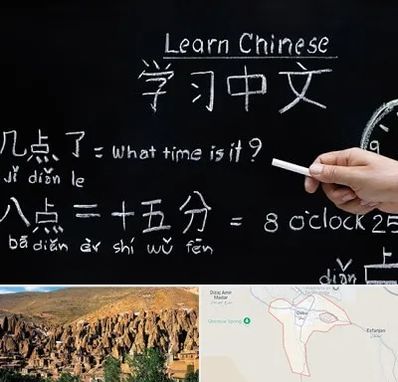 Learn Chinese
学习中文
9
几点了 = What time is it?
Jǐ diǎn le
八点二十五分 = 8 o'clock 25
bā diǎn èr shí wǔ fēn
上
diǎn
Madar
Spring
Osku
Esfanjan